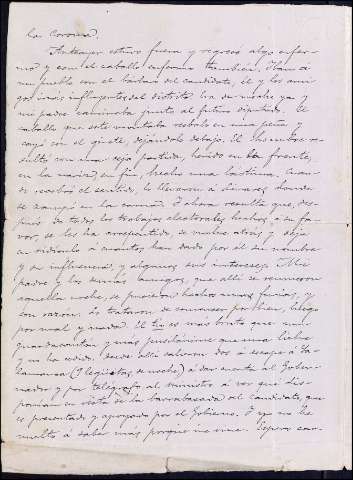 la Corona.
Anteayer estuvo fuera y regresó algo enfer-
mo y con el caballo enfermo también. Iban á
un pueblo con el bárbaro del candidato, él y los ami-
gos más influyentes del distrito. Era de noche ya y
mi padre caminaba junto al futuro diputado. El
caballo que este montaba resbaló en una peña y
cayó con el jinete, dejándole debajo. El hombre re-
sultó con una ceja partida, herido en la frente,
en la nariz, en fin, hecho una lástima. Cuan-
do recobró el sentido, lo llevaron á donde
se zampó en la cama. Y ahora resulta que, des-
pués de todos los trabajos electorales hechos á su fa-
vor, se les ha arrepentido, se vuelve atrás y deja
en ridículo á cuantos han dado por él su nombre
y su influencia, y algunos sus intereses. Mi
padre y los demás amigos, que allí se reunieron
aquella noche, se pusieron hechos unas furias, y
con razón. Lo trataron de convencer por bien, luego
por mal y nada. El tío es más bruto que un
guardacantón y más que una liebre
y no ha cedido. Desde allí salieron dos á escape á Sa-
lamanca (9 leguas, de noche) á dar cuenta al Gober-
nador y por telégrafo al ministro á ver qué dis-
ponían en vista de la barrabasada del candidato, que
es presentado y apoyado por el Gobierno. Y yo no he
vuelto á saber más porque no Espero con-